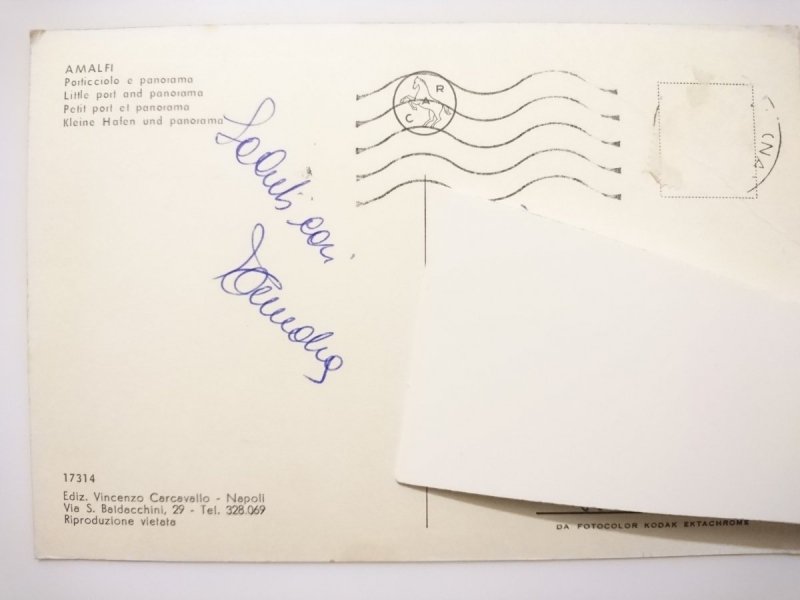 AMALFI
Porticciolo e panorama
Little port and panorama
Petit port et panorama
Kleine Hafen und panorama
C A R
Saluti cari
17314
Ediz. Vincenzo Carcavallo - Napoli
Via S. Baldacchini, 29 - Tel. 328.069
Riproduzione vietata
DA FOTOCOLOR KODAK EKTACHROME